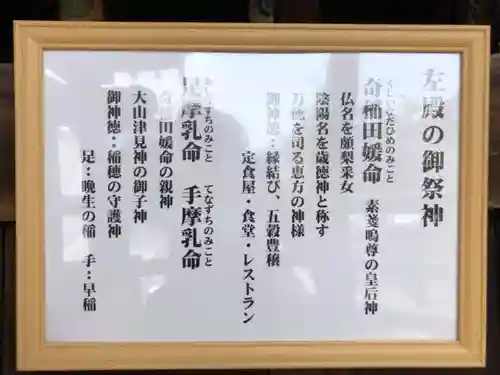 左殿の御祭神
くしいなだひめのみこと
奇稲田媛命 素戔嗚尊の皇后神
仏名を頗梨采女
陰陽名を歳徳神と称す
万徳を司る恵方の神様
御神徳:縁結び、五穀豊穣
定食屋・食堂・レストラン
あしなずちのみこと てなずちのみこと
足摩乳命 手摩乳命
奇稲田媛命の親神
大山津見神の御子神
御神徳:稲穂の守護神
足:晩生の稲 手:早稲